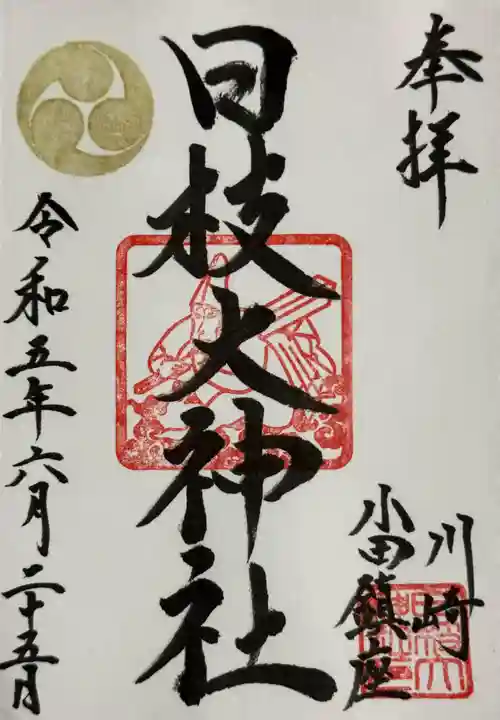 奉拝
川崎
小田鎮座
日枝大神社
令和五年六月二十五月